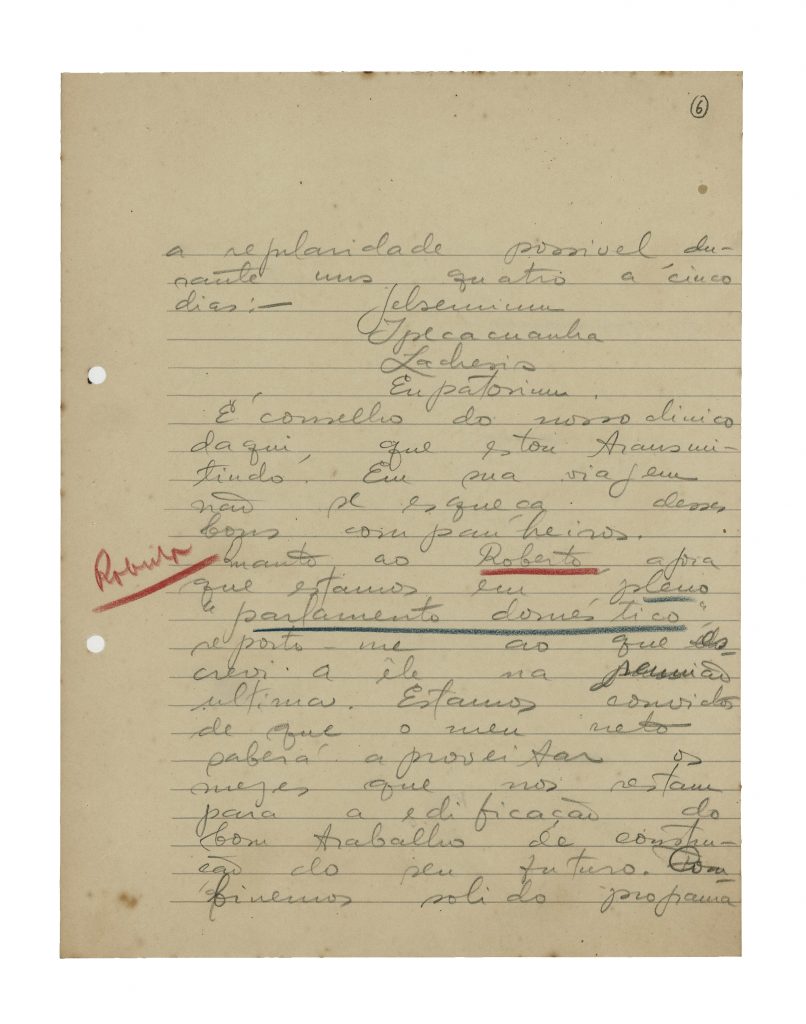 6
a regularidade possivel du-
rante uns quatro a cinco
dias:—
Gelsemium
Ipecacuanha
Lachesis
Eupatorium.
É conselho do nosso clinico
daqui, que estou transmi-
tindo. Em sua viagem
não se esqueça desses
bons companheiros.
Roberto
Quanto ao Roberto, agora
que estamos em pleno
"parlamento doméstico"
reporto-me ao que es-
crevi a êle na reunião
ultima. Estamos convictos
de que o meu neto
saberá aproveitar os
mezes que nos restam
para a edificação do
bom trabalho de constru-
ção do seu futuro. Com
binemos solido programa